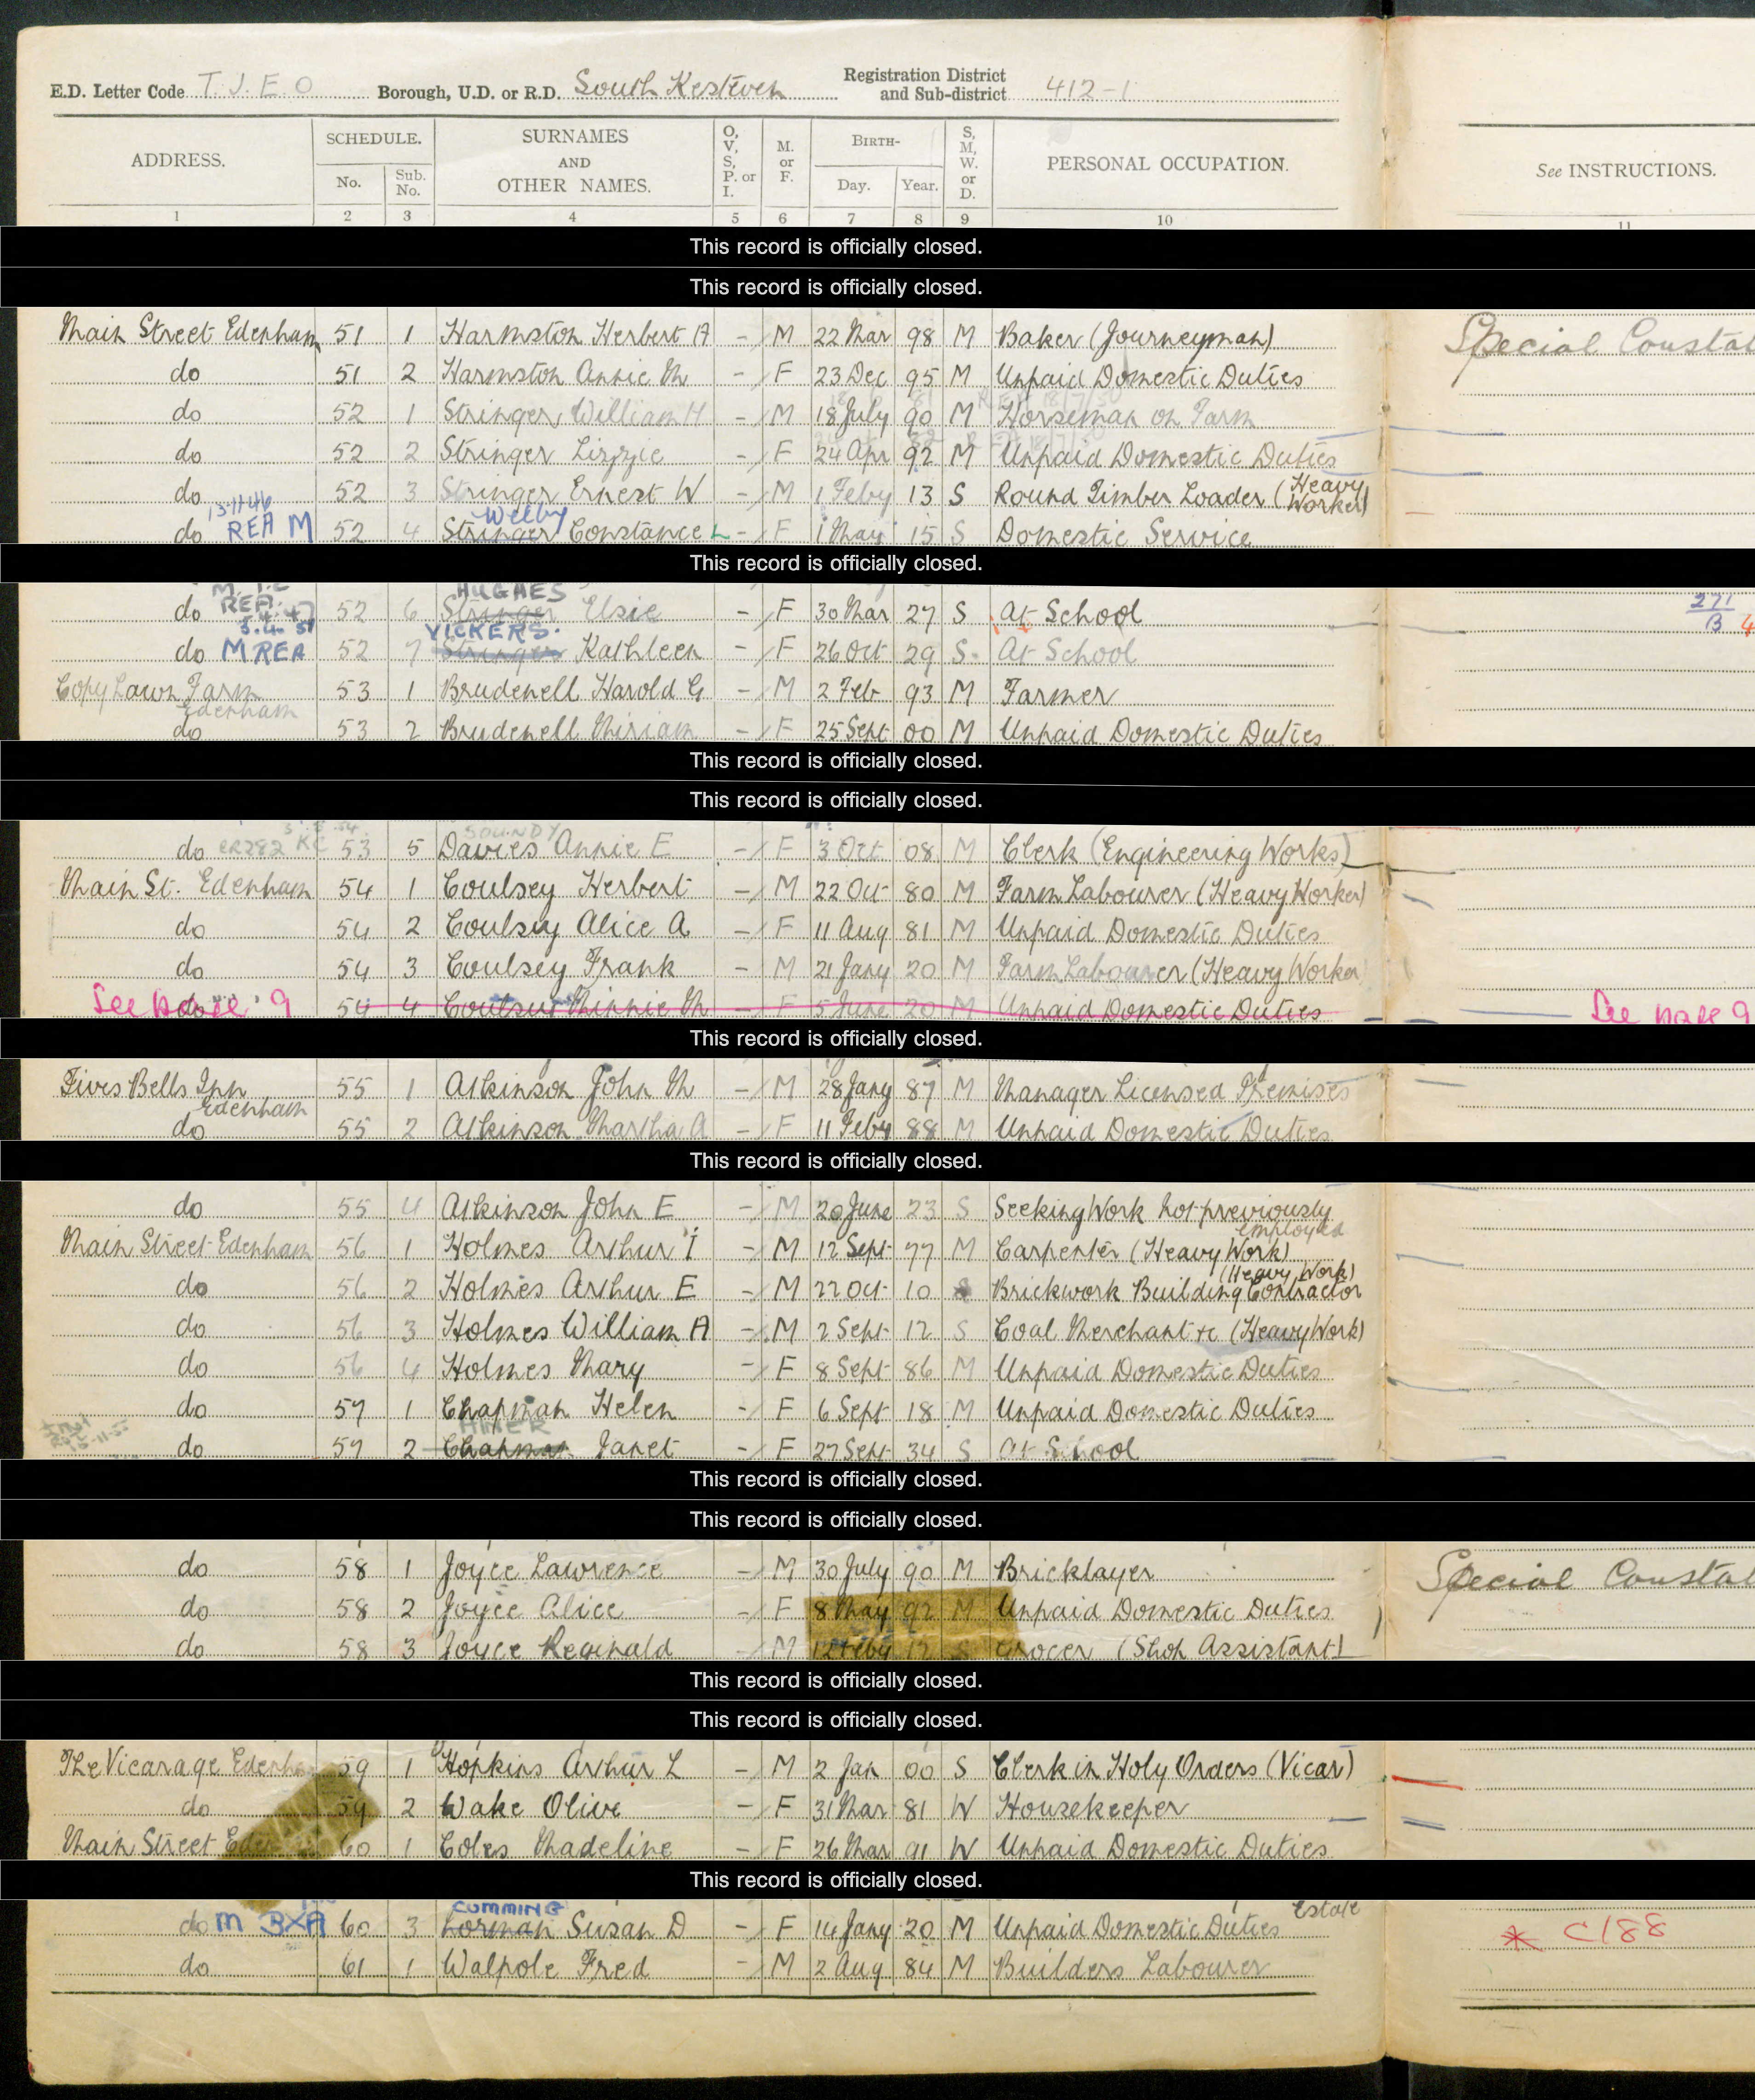 E.D. Letter Code T.J.E.O Borough, U.D. or R.D. South Kesteven Registration District and Sub-district 412-1
ADDRESS. SCHEDULE. No. Sub. No. SURNAMES AND OTHER NAMES. O, V, S, P. or I. M. or F. BIRTH- Day. Year. S, M, W. or D. PERSONAL OCCUPATION. See INSTRUCTIONS.
1 2 3 4 5 6 7 8 9 10 11
This record is officially closed.
This record is officially closed.
Main Street Edenham 51 1 Harmston Herbert A - M 22 Mar 98 M Baker (Journeyman) Special Constab
do 51 2 Harmston Annie M - F 23 Dec 95 M Unpaid Domestic Duties
do 52 1 Stringer William H - M 18 July 90 M Horseman on Farm
do 52 2 Stringer Lizzie - F 24 Apr 92 M Unpaid Domestic Duties
do 52 3 Stringer Ernest W - M 1 Feby 13 S Round Timber Loader (Heavy Worker)
do REA M 52 4 Stringer Welby Constance L - F 1 May 15 S Domestic Service
This record is officially closed.
do REA 52 6 Stringer HUGHES Elsie - F 30 Mar 27 S At School 271 B 4
do M REA 52 7 Stringer VICKERS. Kathleen - F 26 Oct 29 S At School
Copy Lawn Farm Edenham 53 1 Brudenell Harold G - M 2 Feb 93 M Farmer
do 53 2 Brudenell Miriam - F 25 Sept 00 M Unpaid Domestic Duties
This record is officially closed.
This record is officially closed.
do CR282 KC 53 5 Davies SOUNDY Annie E - F 3 Oct 08 M Clerk (Engineering Works)
Main St. Edenham 54 1 Coulsey Herbert - M 22 Oct 80 M Farm Labourer (Heavy Worker)
do 54 2 Coulsey Alice A - F 11 Aug 81 M Unpaid Domestic Duties
do 54 3 Coulsey Frank - M 21 Jany 20 M Farm Labourer (Heavy Worker)
See page 9 do 54 4 Coulsey Minnie M - F 5 June 20 M Unpaid Domestic Duties See page 9
This record is officially closed.
Fives Bells Inn Edenham 55 1 Atkinson John M - M 28 Jany 87 M Manager Licensed Premises
do 55 2 Atkinson Martha A - F 11 Feby 88 M Unpaid Domestic Duties
This record is officially closed.
do 55 4 Atkinson John E - M 20 June 23 S Seeking Work not previously employed
Main Street Edenham 56 1 Holmes Arthur T - M 12 Sept 77 M Carpenter (Heavy Work)
do 56 2 Holmes Arthur E - M 22 Oct 10 Brickwork Building Contractor (Heavy Work)
do 56 3 Holmes William A - M 2 Sept 12 S Coal Merchant &c (Heavy Work)
do 56 4 Holmes Mary - F 8 Sept 86 M Unpaid Domestic Duties
do 57 1 Chapman Helen - F 6 Sept 18 M Unpaid Domestic Duties
do 57 2 Chapman Janet - F 27 Sept 34 S At School
This record is officially closed.
This record is officially closed.
do 58 1 Joyce Lawrence - M 30 July 90 M Bricklayer Special Constab
do 58 2 Joyce Alice - F 8 May 92 M Unpaid Domestic Duties
do 58 3 Joyce Reginald - M 12 Feby 12 S Grocer (Shop Assistant)
This record is officially closed.
This record is officially closed.
The Vicarage Edenham 59 1 Hopkins Arthur L - M 2 Jan 00 S Clerk in Holy Orders (Vicar)
do 59 2 Wake Olive - F 31 Mar 81 W Housekeeper
Main Street Eden 60 1 Coles Madeline - F 26 Mar 91 W Unpaid Domestic Duties
This record is officially closed.
do M BXA 60 3 CUMMING Susan D - F 14 Jany 20 M Unpaid Domestic Duties Estate * C188
do 61 1 Walpole Fred - M 2 Aug 84 M Builders Labourer